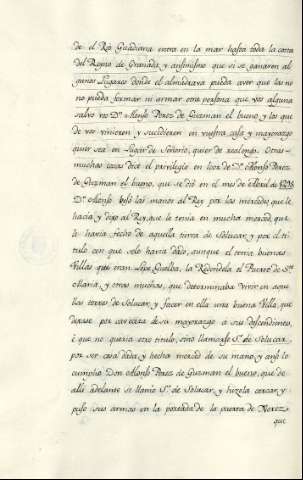 de el Rio Guadiana entra en la mar hasta toda la costa
del Reyno de Granada, y ansimismo que si se ganaren al
gunos Lugares donde el almadrava pueda aver que los no
no pueda formar ni armar otra persona que vos alguna
salvo vos Dn. Alonso Perez de Guzman el bueno, y los que
de vos vinieren y succedieren en vuestra casa y mayorazgo
quier sea en Lugar de Señorio, quier de realengo. Otras
muchas cosas dice el privilegio en loor de Dn. Alonso Perez
de Guzman el bueno, que se dió en el mes de Abril de
Dn. Alonso besó las manos al Rey por las mercedes que le
hacía y dijo al Rey, que le tenia en mucha merced, que
le havia fecho de aquella tierra de Solucar, y por el ti
tulo con que solo havia dado, aunque el tenia buenas
Villas que eran Lepe Huelba, la Redondela, el Puerto de Sta.
Maria, y otras muchas, que determinaba vivir en aque
llas tierras de Solucar, y facer en ella una buena Villa, que
dejase por cavecera de su mayorazgo á sus descendientes,
é que no queria otro titulo, sino llamarse Sr. de Solucar,
por ser cosa dada, y hecha merced de su mano, y ansi lo
cumplio Don Alonso Perez de Guzman el bueno, que de
alli adelante se llamó Sr. de Solucar, y hizola cercar, y
puso sus armas en la portada de la puerta de Xerez
que